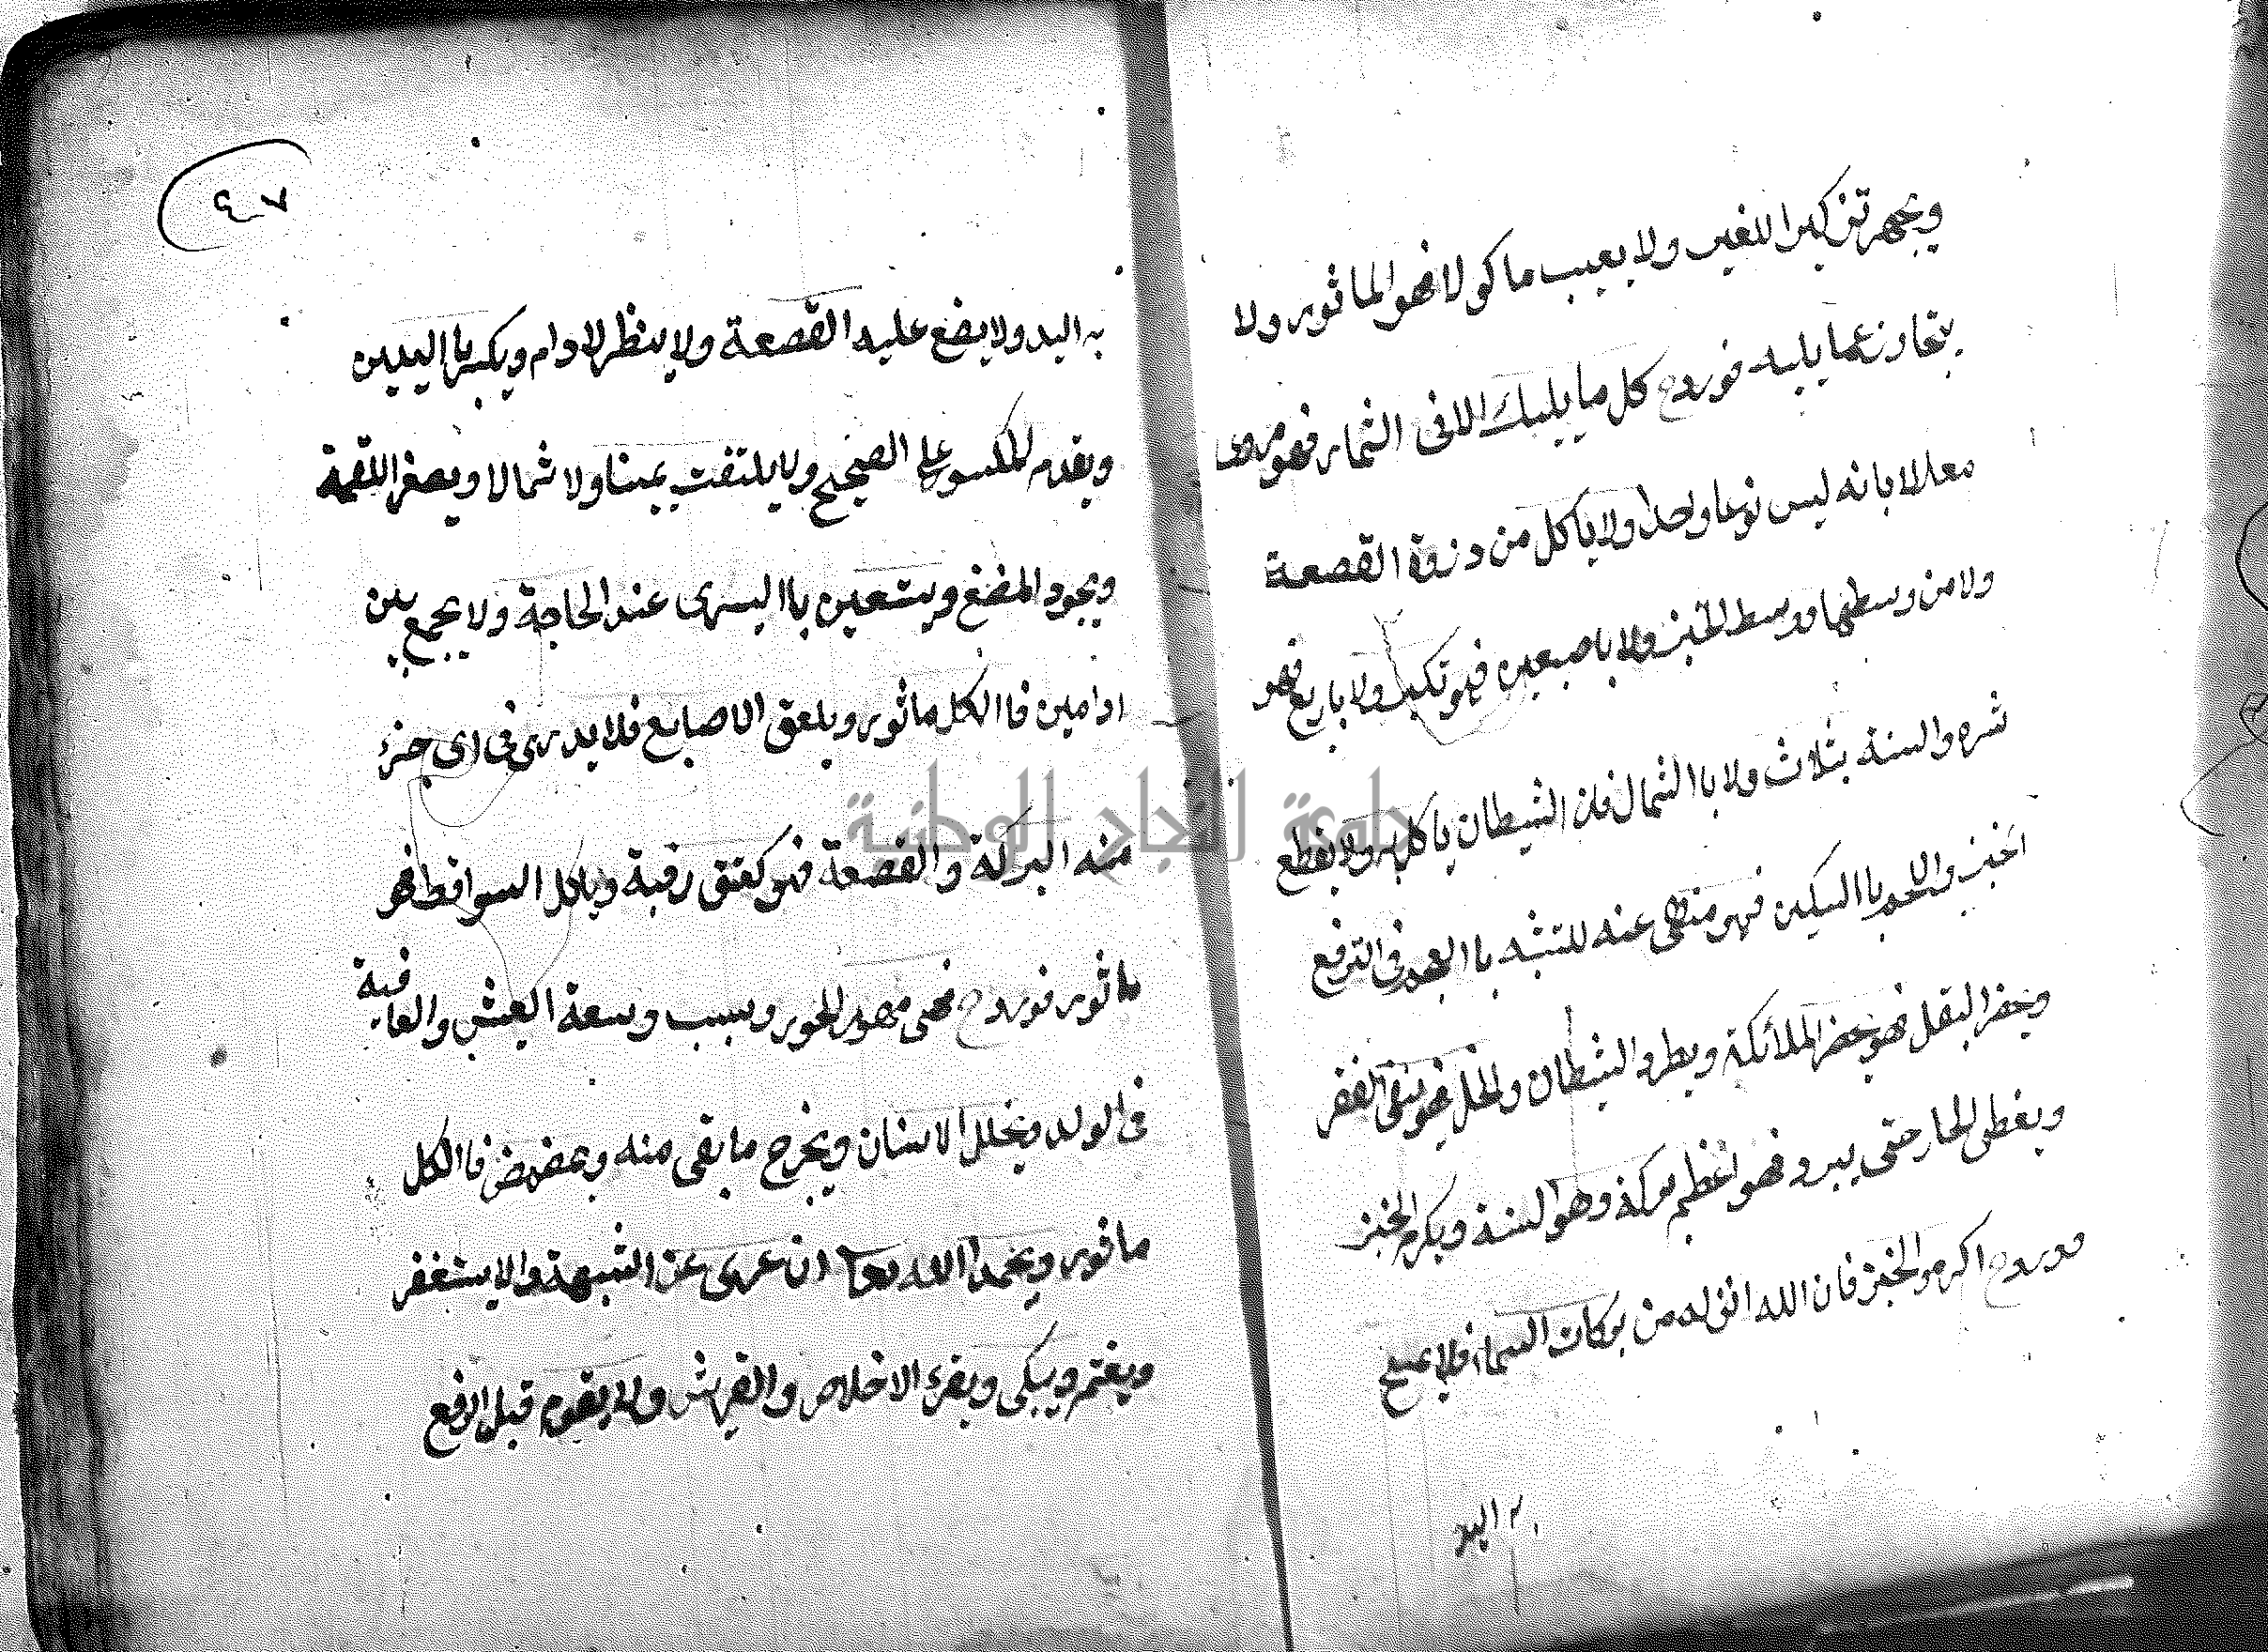 ويجهر تذكيرا للغير ولا يعيب ماكولا فهو الماثور ولا
يتجاوز عما يليه فورد ح كل ما يليك الا فى الثمار فهو مروى
معللا بانه ليس نوعا واحدا ولا ياكل من دزوة القصعة
ولا من وسطها ووسط الخبز ولا باصبعين فهو تكبر ولا باربع فهو
شره والسنة بثلاث ولا باالشمال فان الشيطان ياكل به ولا يقطع
الخبز واللحم باالسكين فهو منهى عنه للتشبه باالعجم فى الترفع
ويحضر البقل فهو يحضر الملائكة ويطرد الشيطان والخل فهو ينفى الفقر
ويغطى الحار حتى يبرد فهو اعظم بركة وهو السنة ويكرم الخبز
فورد ح اكرموا الخبز فان الله انزله من بركات السماء فلا يمسح
به اليد
٤٧
به اليد ولا يضع عليه القصعة ولا ينظر الادام ويكسر باا اليدين
ويقدم المكسور على الصحيح ولا يلتفت يمينا ولا شمالا ويصغر اللقمة
ويجود المضغ ويستعين باا اليسرى عند الحاجة ولا يجمع بين
ادامين فاالكل ماثور ويلعق الاصابع فلا يدرى فى اى جزء
منه البركة والقصعة فهو كعتق رقبة وياكل السواقط فهو
ماثور فورد ح فهى مهور الحور وسبب وسعة العيش والعافية
فى الولد ويخلل الاسنان ويخرج ما بقى منه ويمضمض فاالكل
ماثور ويحمد الله تعا ان عرى عن الشبهة والا يستغفر
ويغتم ويبكى ويقرء الاخلاص والقريش ولا يقوم قبل الرفع
جامعة النجاح الوطنية